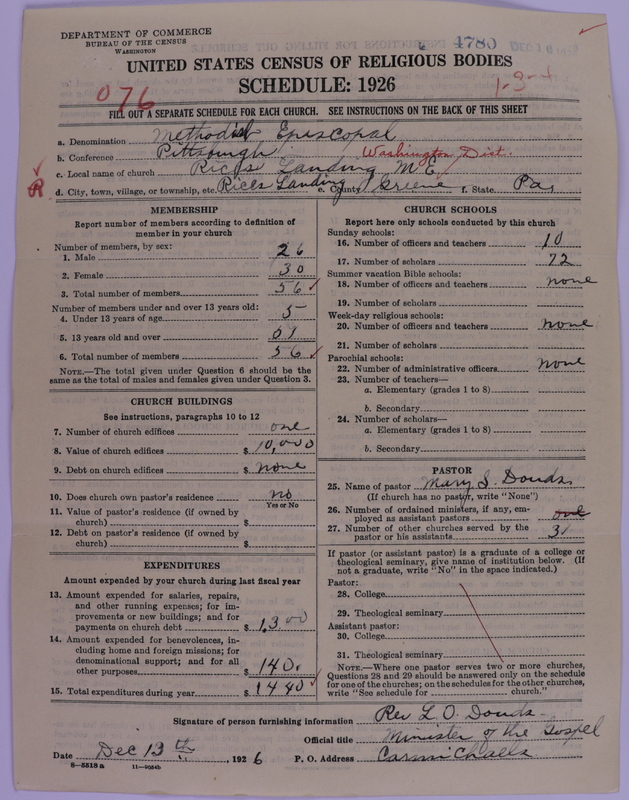 DEPARTMENT OF COMMERCE
BUREAU OF THE CENSUS
WASHINGTON
4780
UNITED STATES CENSUS OF RELIGIOUS BODIES
SCHEDULE: 1926
076
FILL OUT A SEPARATE SCHEDULE FOR EACH CHURCH. SEE INSTRUCTIONS ON THE BACK OF THIS SHEET
a. Denomination Methodist Episcopal
b. Conference Pittsburgh Washington Dist.
c. Local name of church Rices Landing M E
R
d. City, town, village, or township, etc. Rices Landing e. County Greene f. State Pa,
MEMBERSHIP
Report number of members according to definition of
member in your church
Number of members, by sex:
1. Male 26
2. Female 30
3. Total number of members 56
Number of members under and over 13 years old:
4. Under 13 years of age 5
5. 13 years old and over 51
6. Total number of members 56
NOTE.—The total given under Question 6 should be
same as the total of males and females given under Question 3.
CHURCH BUILDINGS
See instructions, paragraphs 10 to 12
7. Number of church edifices one
8. Value of church edifices $ 10,000
9. Debt on church edifices $ none
10. Does church own pastor's residence no
Yes or No
11. Value of pastor's residence (if owned by
church) $
12. Debt on pastor's residence (if owned by
church) $
EXPENDITURES
Amount expended by your church during last fiscal year
13. Amount expended for salaries, repairs,
and other running expenses; for im-
provements or new buildings; and for
payments on church debt $ 1,300
14. Amount expended for benevolences, in-
cluding home and foreign missions; for
denominational support; and for all
other purposes $ 140.
15. Total expenditures during year $ 1440
CHURCH SCHOOLS
Report here only schools conducted by this church
Sunday schools:
16. Number of officers and teachers 10
17. Number of scholars 72
Summer vacation Bible schools:
18. Number of officers and teachers none
19. Number of scholars
Week-day religious schools:
20. Number of officers and teachers none
21. Number of scholars
Parochial schools:
22. Number of administrative officers none
23. Number of teachers—
a. Elementary (grades 1 to 8)
b. Secondary
24. Number of scholars—
a. Elementary (grades 1 to 8)
b. Secondary
PASTOR
25. Name of pastor Mary S. Douds
(If church has no pastor, write "None")
26. Number of ordained ministers, if any, em-
ployed as assistant pastors one
27. Number of other churches served by the
pastor or his assistants 3
If pastor (or assistant pastor) is a graduate of a college or
theological seminary, give name of institution below. (If
not a graduate, write "No" in the space indicated.)
Pastor:
28. College
29. Theological seminary
Assistant pastor:
30. College
31. Theological seminary
NOTE.—Where one pastor serves two or more churches,
Questions 28 and 29 should be answered only on the schedule
for one of the churches; on the schedules for the other churches,
write "See schedule for church."
Signature of person furnishing information Rev L O. Douds
Official title Minister of the Gospel
Date Dec 13th, 1926 P. O. Address Carmichaels
8—5518 a 11—9054b